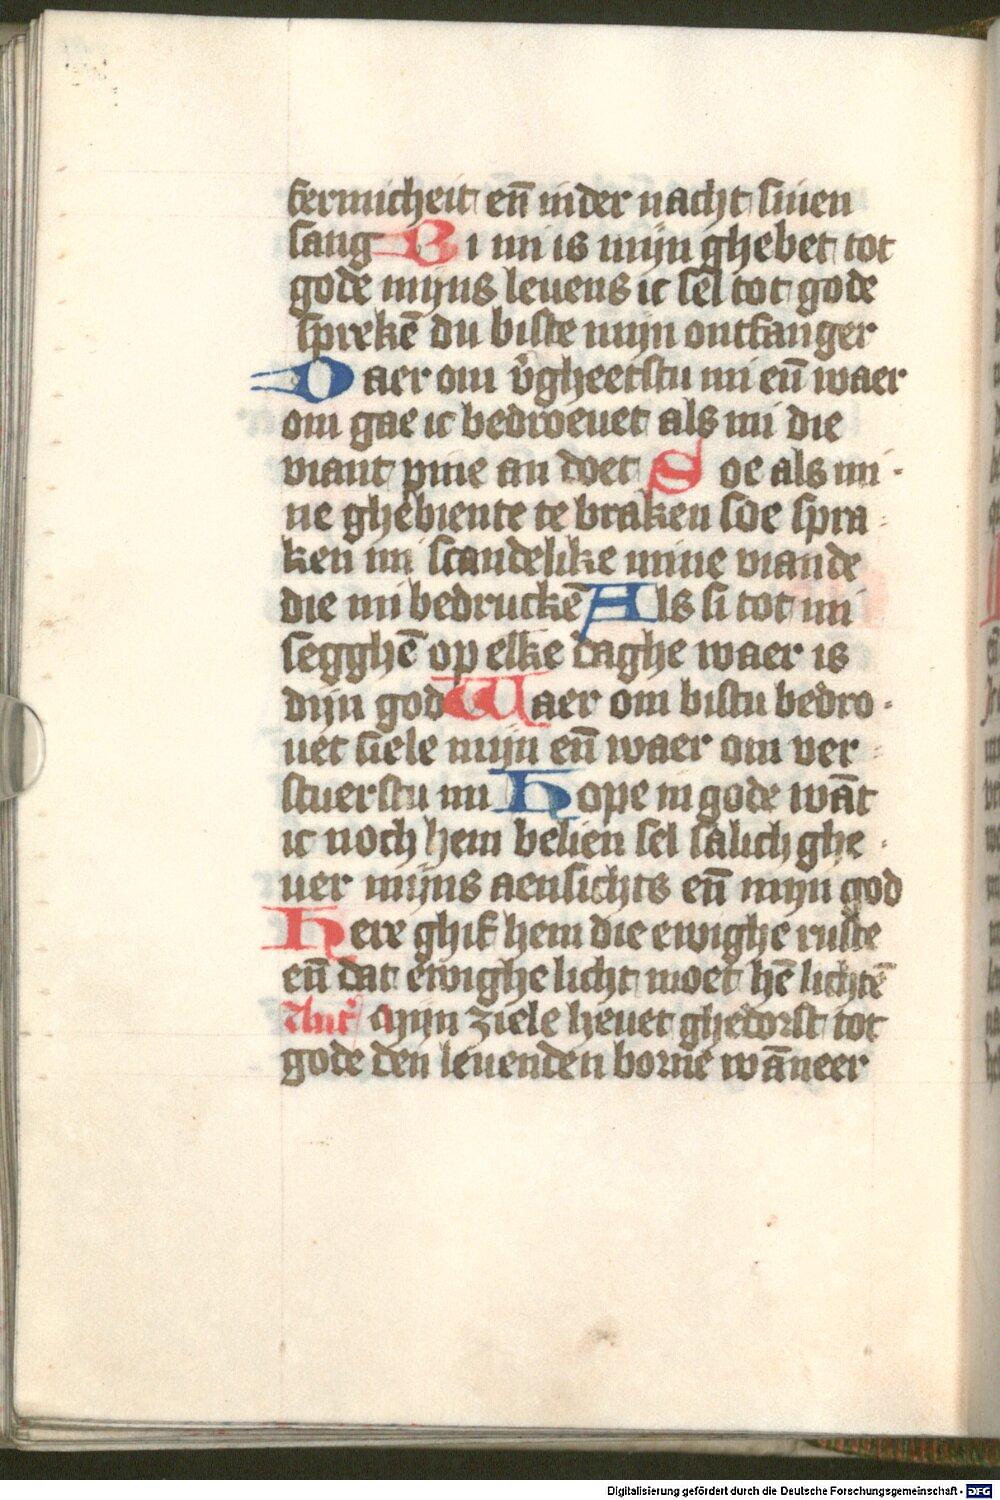 fermicheit en̄ in der nacht sinen
sang Bi mi is mijn ghebet tot
gode mijns leuens ic sel tot gode
sprekē du biste mijn ontfanger
Daer om v̉gheetstu mi en̄ waer
om gae ic bedroeuet als mi die
viant pine an doet Soe als mi
ne ghebiente te braken soe spra
ken mi scandelike mine viande
die mi bedruckē Als si tot mi
segghē op elke daghe waer is
dijn god Waer om bistu bedro
uet siele mijn en̄ waer om ver
stuerstu mi Hope in gode wāt
ic noch hem belien sel salich ghe
uer mijns aensichts en̄ mijn god
Here ghif hem die ewighe ruste
en̄ dat ewighe licht moet hē lichtē
Ant' Mijn ziele heuet ghedorst tot
gode den leuenden borne wāneer
Digitalisierung gefördert durch die Deutsche Forschungsgemeinschaft - DFG